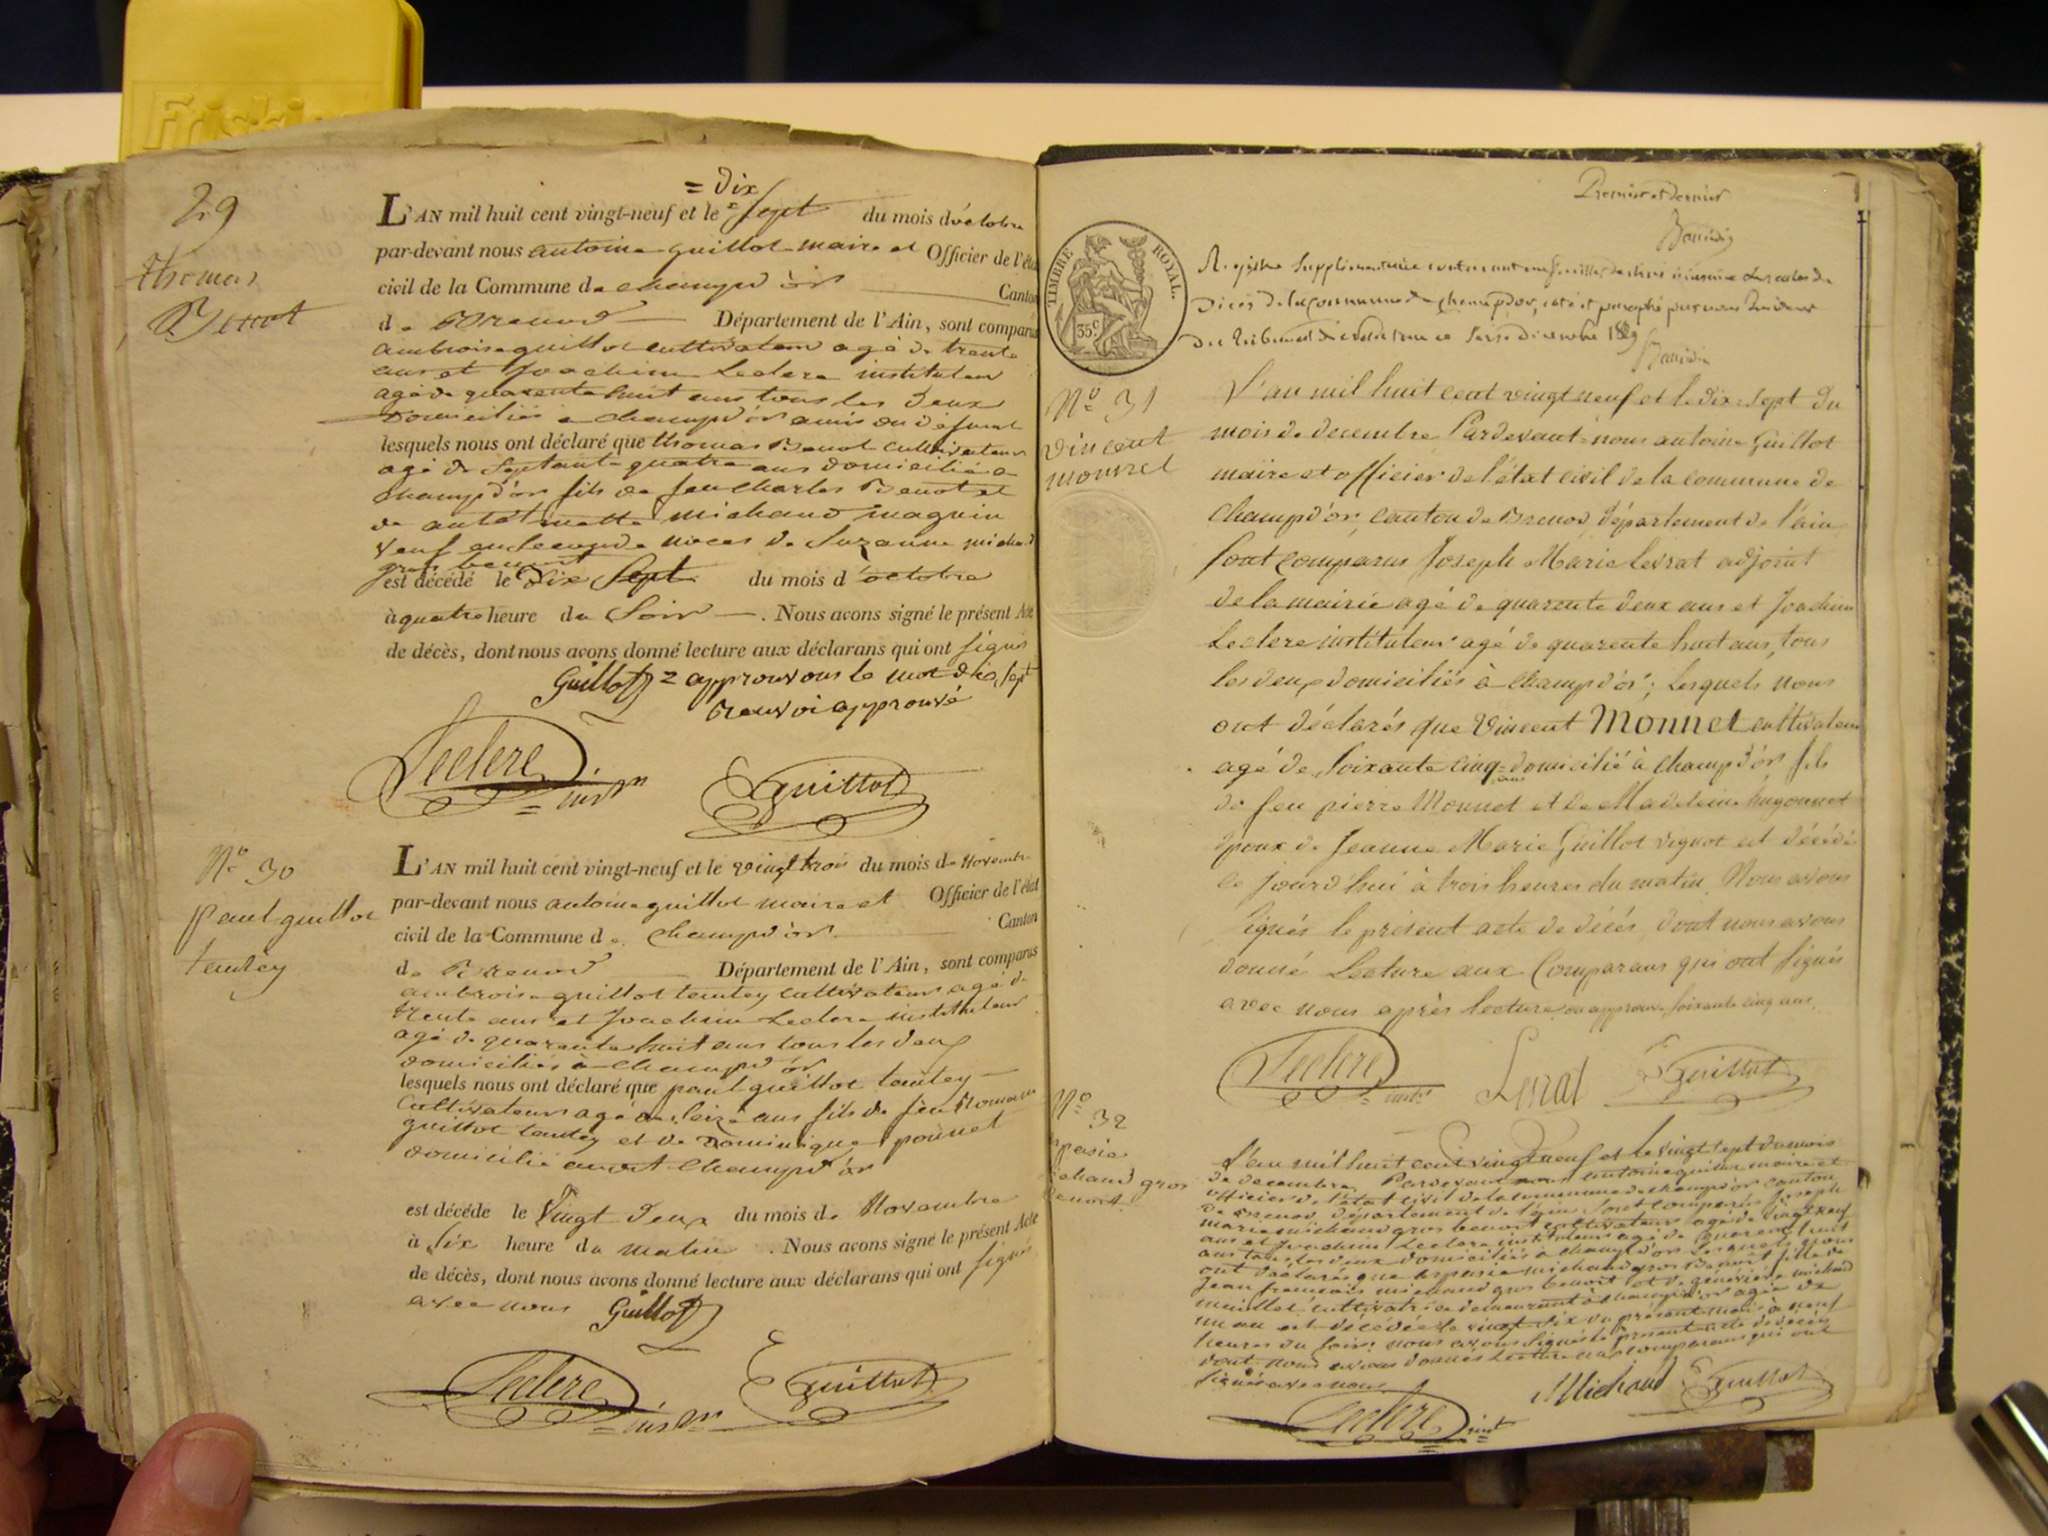 29
Thomas
Benot
= dix
L'AN mil huit cent vingt-neuf et le = sept du mois d'octobre
par-devant nous antoine guillot maire et Officier de l'état
civil de la Commune de champd'or Canton
de Brenod Département de l'Ain, sont comparus
ambroise guillot cultivateur agé de trente
ans et Joachim Leclere instituteur
agé de quarente huit ans tous les deux
domiciliés à champd'or amis du défunt
lesquels nous ont déclaré que thomas Benot cultivateur
agé de septante quatre ans domicilié a
champd'or fils de feu charles Benot et
de michaud maguin
veuf en seconde noces de Suzanne michaud
gros benoit
est décédé le Dix Sept du mois d'octobre
à quatre heure du Soir. Nous avons signé le présent Acte
de décès, dont nous avons donné lecture aux déclarans qui ont signés
Guillot = approuvons le mot dix sept
renvoi approuvé
Leclere
= instr
Guillot
No 30
paul guillot
tentey
L'AN mil huit cent vingt-neuf et le vingt trois du mois de Novembre
par-devant nous antoine guillot maire et Officier de l'état
civil de la Commune de champd'or Canton
de Brenod Département de l'Ain, sont comparus
ambroise guillot tentey cultivateur agé de
trente ans et Joachim Leclere instituteur
agé de quarente huit ans tous les deux
domiciliés à champd'or
lesquels nous ont déclaré que paul guillot tentey
cultivateur agé de seize ans fils de feu Romain
guillot tentey et de Dominique ponnet
domicilié champd'or
est décédé le Vingt deux du mois de Novembre
à six heure du matin. Nous avons signé le présent Acte
de décès, dont nous avons donné lecture aux déclarans qui ont signé
avec nous Guillot
Leclere
= instr
Guillot
Premier et dernier
TIMBRE ROYAL.
35c
Registre Supplémentaire contenant une feuille destiné à inscrire les actes de
Décés de la commune de champdor, coté et paraphé par nous Président
du Tribunal de ce seize décembre 1829
No 31
Vincent
monnet
L'an mil huit cent vingt neuf et le dix-sept du
mois de decembre Pardevant-nous antoine Guillot
maire et officier de l'état civil de la commune de
Champd'or, canton de Brenod, département de l'ain,
sont comparus Joseph Marie Levrat adjoint
de la mairie agé de quarente deux ans et Joachim
Leclere instituteur agé de quarente huit ans, tous
les deux domiciliés à Champd'or; Lesquels nous
ont déclarés que Vincent Monnet cultivateur
agé de Soixante cinq = domicilié à champd'or fils
ans
de feu pierre Monnet et de Madeleine hugonnet
Epoux de Jeanne Marie Guillot vignot est décédé
ce jourd'hui à trois heures du matin. Nous avons
signés le présent acte de décés, dont nous avons
donné Lecture aux Comparans qui ont signés
avec nous après lecture. on approuve soixante cinq ans.
Leclere
= instr
Levrat
Guillot
No
32
pasie
ichaud gros
enoit.
L'an mil huit cent vingt neuf et le vingt sept du mois
de decembre Pardevant nous antoine guillot maire et
officier de l'état civil de la commune de champd'or canton
de Brenod département de l'ain sont comparus Joseph
marie michaud gros benoit cultivateur agé de vingt neuf
ans et Joachim Leclere instituteur agé de quarente huit
ans tous les deux domiciliés à champd'or Lesquels nous
ont déclarés que aspasie michaud gros Benoit fille de
Jean francois michaud gros benoit et de geneviève michaud
maillet cultivatrice demeurant à champd'or agée de
un an est décédée le vingt six du présent mois à neuf
heures du soir; nous avons signés le présent acte de décés
dont nous avons donnés lecture aux comparans qui ont
signés avec nous
Michaud
Guillot
Leclere
inst